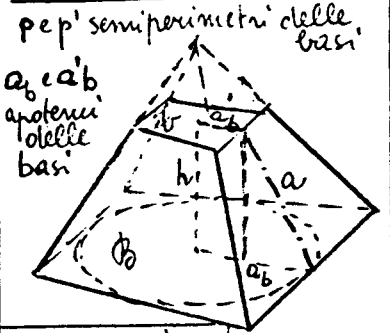 p e p' semiperimetri delle
basi
ab e a'b
apotemi
delle
basi
b
a'b
h
a
B
ab